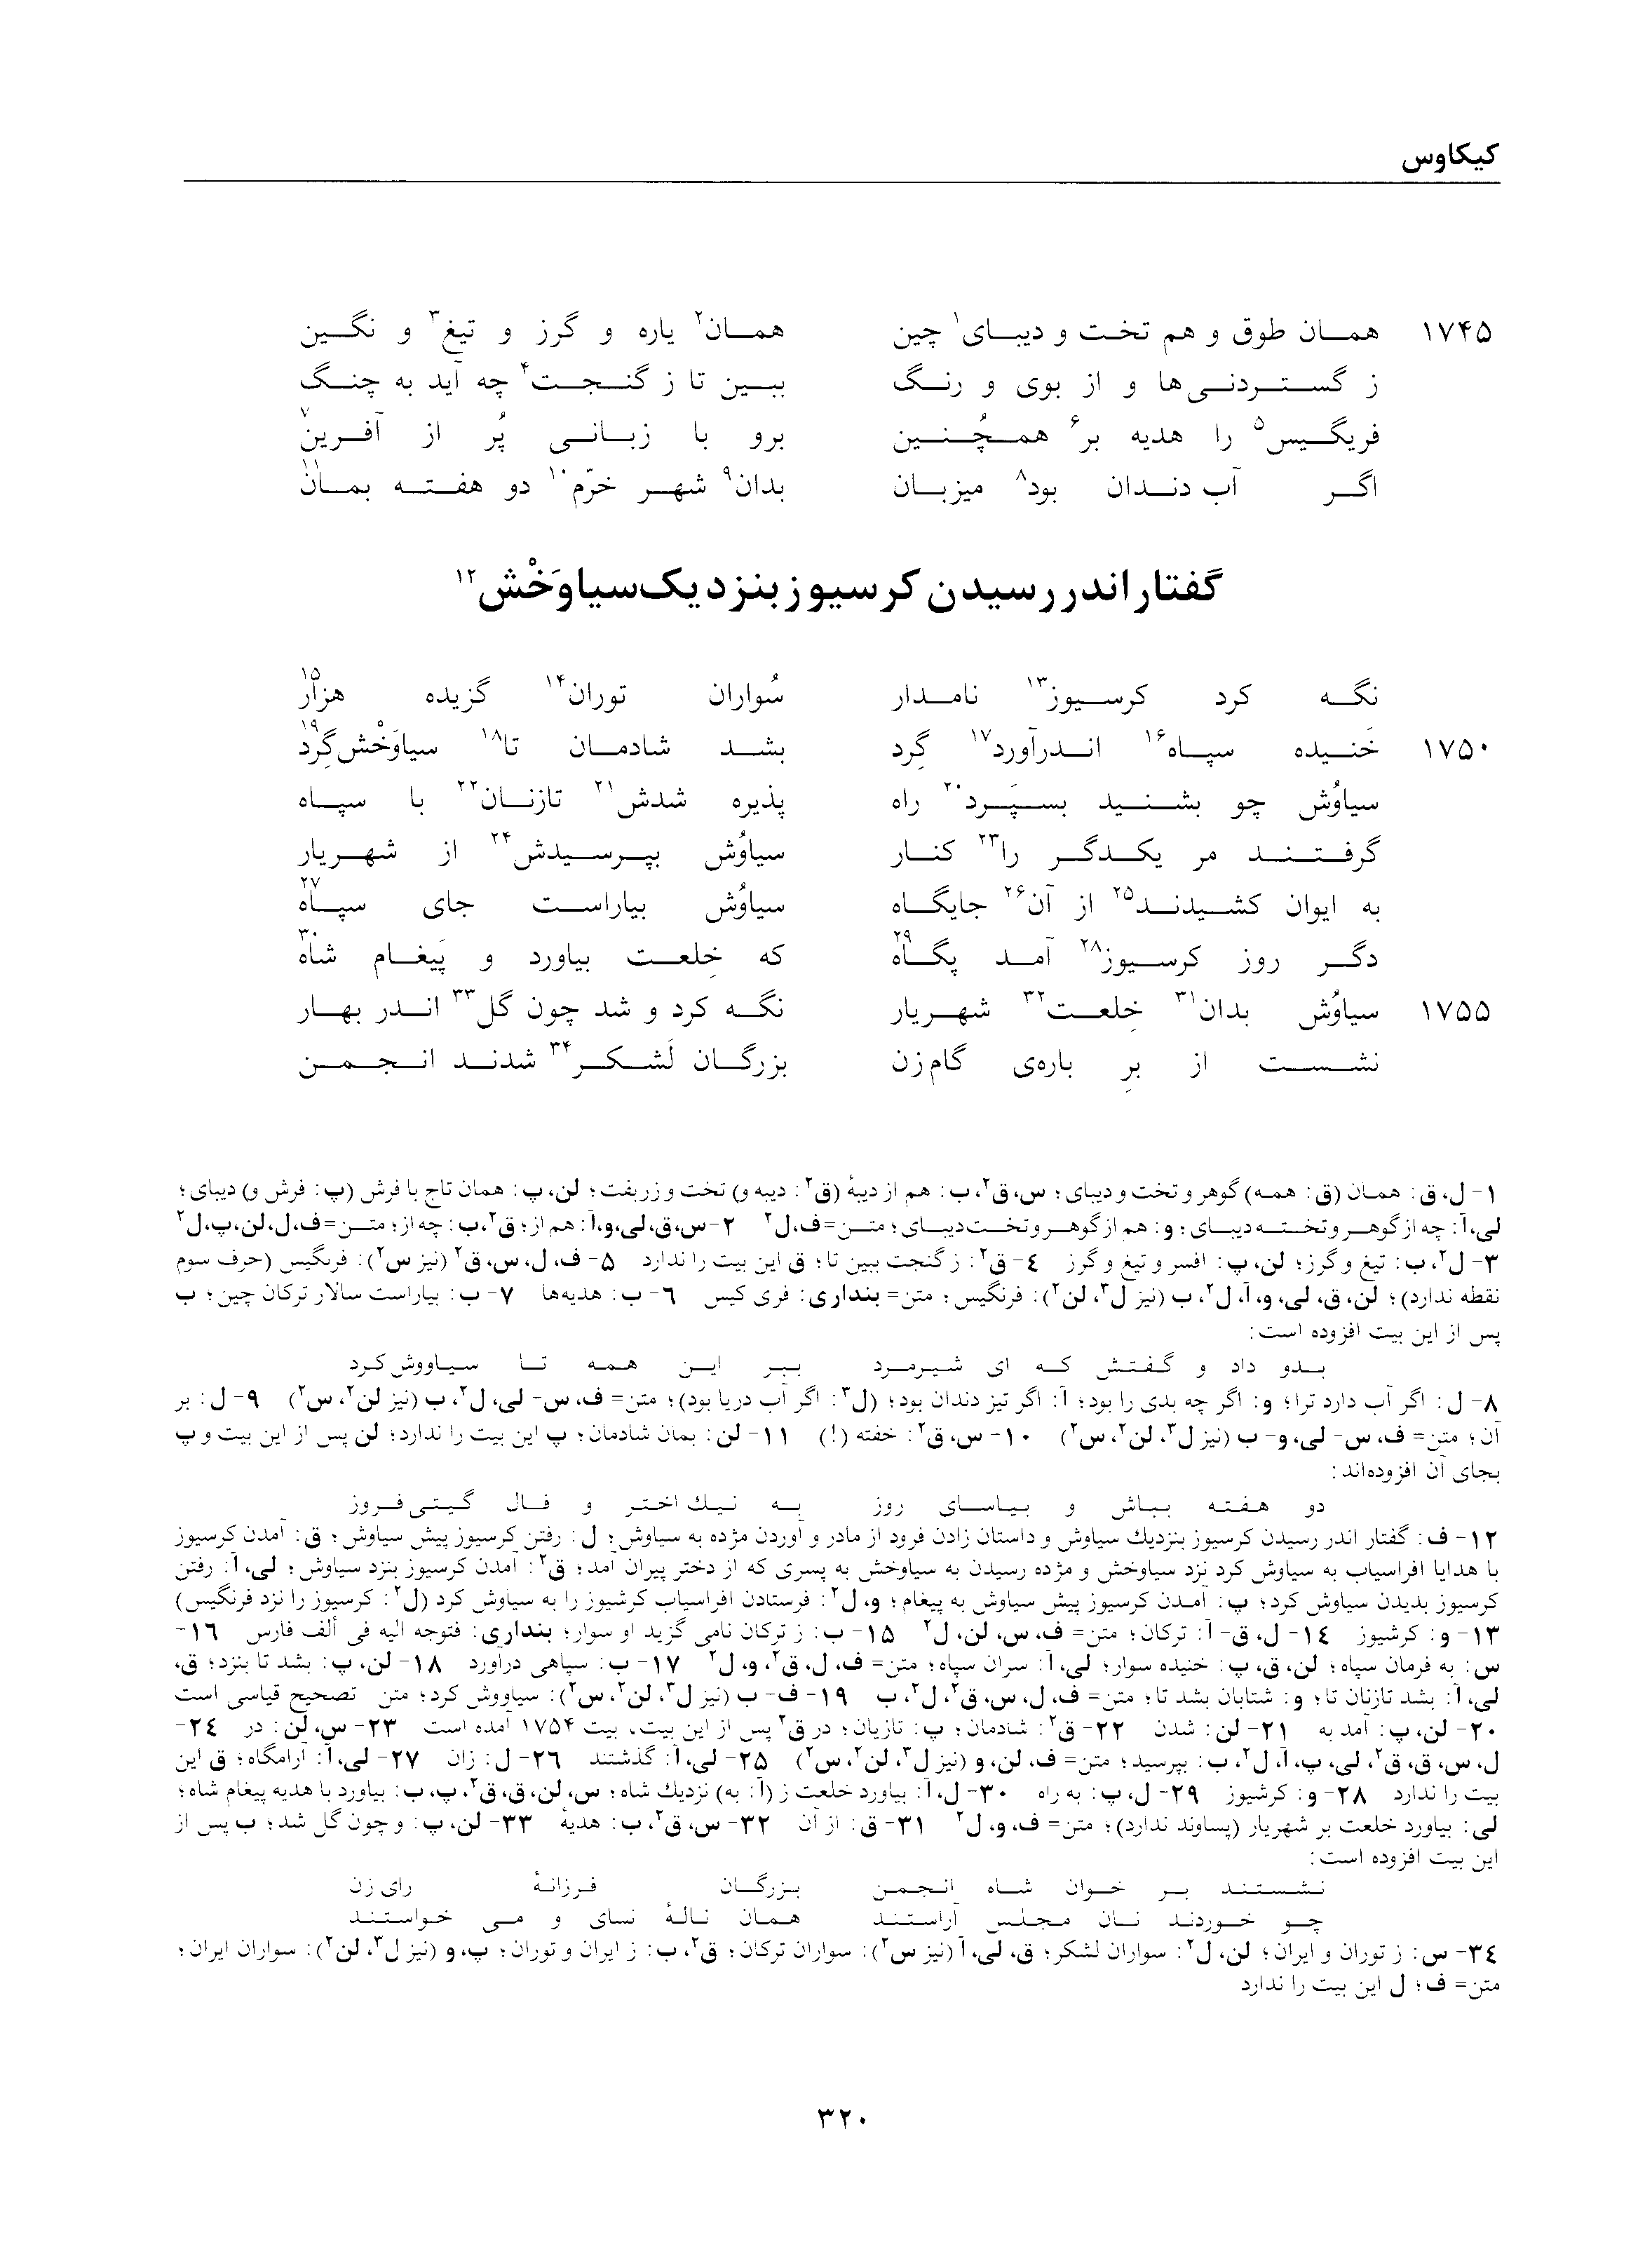 کیکاوس
۱۷۴۵ همان طوق و هم تخت و دیبای۱ چین همان۲ یاره و گرز و تیغ۳ و نگین
ز گستردنی‌ها و از بوی و رنگ ببین تا ز گنجت۴ چه آید به چنگ
فریگیس۵ را هدیه بر۶ همچُنین برو با زبانی پُر از آفرین۷
اگر آب دندان بود۸ میزبان بدان۹ شهر خرّم۱۰ دو هفته بمان۱۱
گفتار اندر رسیدن کرسیوز بنزدیک سیاوَخْش۱۲
نگه کرد کرسیوز۱۳ نامدار سُواران توران۱۴ گزیده هزار۱۵
۱۷۵۰ خَنیده سپاه۱۶ اندرآورد۱۷ گِرد بشد شادمان تا۱۸ سیاوَخْش‌گِرد۱۹
سیاوُش چو بشنید بسپَرد۲۰ راه پذیره شدش۲۱ تازنان۲۲ با سپاه
گرفتند مر یکدگر را۲۳ کنار سیاوُش بپرسیدش۲۴ از شهریار
به ایوان کشیدند۲۵ از آن۲۶ جایگاه سیاوُش بیاراست جای سپاه۲۷
دگر روز کرسیوز۲۸ آمد پگاه۲۹ که خِلعت بیاورد و پَیغام شاه۳۰
۱۷۵۵ سیاوُش بدان۳۱ خِلعت۳۲ شهریار نگه کرد و شد چون گل۳۳ اندر بهار
نشست از برِ باره‌ی گام‌زن بزرگان لَشکر۳۴ شدند انجمن
۱- ل، ق: همان (ق: همه) گوهر و تخت و دیبای؛ س، ق۲، ب: هم از دیبهٔ (ق۲: دیبه و) تخت و زربفت؛ لن، پ: همان تاج با فرش (پ: فرش و) دیبای؛
لی، آ: چه از گوهر و تخته دیبای؛ و: هم از گوهر و تخت دیبای؛ متن= ف، ل۲ ۲- س، ق، لی، و، آ: هم از؛ ق۲، ب: چه از؛ متن= ف، ل، لن، پ، ل۲
۳- ل۲، ب: تیغ و گرز؛ لن، پ: افسر و تیغ و گرز ۴- ق۲: ز گنجت ببین تا؛ ق این بیت را ندارد ۵- ف، ل، س، ق۲ (نیز س۲): فرنگیس (حرف سوم
نقطه ندارد)؛ لن، ق، لی، و، آ، ل۲، ب (نیز ل۳، لن۲): فرنگیس؛ متن= بنداری: فری کیس ۶- ب: هدیه‌ها ۷- ب: بیاراست سالار ترکان چین؛ ب
پس از این بیت افزوده است:
بدو داد و گفتش که ای شیرمرد ببر این همه تا سیاووش‌کرد
۸- ل: اگر آب دارد ترا؛ و: اگر چه بدی را بود؛ آ: اگر تیز دندان بود؛ (ل۳: اگر آب دریا بود)؛ متن= ف، س- لی، ل۲، ب (نیز لن۲، س۲) ۹- ل: بر
آن؛ متن= ف، س- لی، و- ب (نیز ل۳، لن۲، س۲) ۱۰- س، ق۲: خفته (!) ۱۱- لن: بمان شادمان؛ پ این بیت را ندارد؛ لن پس از این بیت و پ
بجای آن افزوده‌اند:
دو هفته بباش و بیاسای روز به نیك اختر و فال گیتی فروز
۱۲- ف: گفتار اندر رسیدن کرسیوز بنزدیك سیاوش و داستان زادن فرود از مادر و آوردن مژده به سیاوش؛ ل: رفتن کرسیوز پیش سیاوش؛ ق: آمدن کرسیوز
با هدایا افراسیاب به سیاوش کرد نزد سیاوخش و مژده رسیدن به سیاوخش به پسری که از دختر پیران آمد؛ ق۲: آمدن کرسیوز بنزد سیاوش؛ لی، آ: رفتن
کرسیوز بدیدن سیاوش کرد؛ پ: آمدن کرسیوز پیش سیاوش به پیغام؛ و، ل۲: فرستادن افراسیاب کرشیوز را به سیاوش کرد (ل۲: کرسیوز را نزد فرنگیس)
۱۳- و: کرشیوز ۱۴- ل، ق- آ: ترکان؛ متن= ف، س، لن، ل۲ ۱۵- ب: ز ترکان نامی گزید او سوار؛ بنداری: فتوجه الیه فی ألف فارس ۱۶-
س: به فرمان سپاه؛ لن، ق، پ: خنیده سوار؛ لی، آ: سران سپاه؛ متن= ف، ل، ق۲، و، ل۲ ۱۷- ب: سپاهی درآورد ۱۸- لن، پ: بشد تا بنزد؛ ق،
لی، آ: بشد تازنان تا؛ و: شتابان بشد تا؛ متن= ف، ل، س، ق۲، ل۲، ب ۱۹- ف- ب (نیز ل۳، لن۲، س۲): سیاووش کرد؛ متن تصحیح قیاسی است
۲۰- لن، پ: آمد به ۲۱- لن: شدن ۲۲- ق۲: شادمان؛ پ: تازیان؛ در ق۲ پس از این بیت، بیت ۱۷۵۴ آمده است ۲۳- س، لن: در ۲۴-
ل، س، ق، ق۲، لی، پ، آ، ل۲، ب: بپرسید؛ متن= ف، لن، و (نیز ل۳، لن۲، س۲) ۲۵- لی، آ: گذشتند ۲۶- ل: زان ۲۷- لی، آ: آرامگاه؛ ق این
بیت را ندارد ۲۸- و: کرشیوز ۲۹- ل، پ: به راه ۳۰- ل، آ: بیاورد خلعت ز (آ: به) نزدیك شاه؛ س، لن، ق، ق۲، پ، ب: بیاورد با هدیه پیغام شاه؛
لی: بیاورد خلعت بر شهریار (پساوند ندارد)؛ متن= ف، و، ل۲ ۳۱- ق: از آن ۳۲- س، ق۲، ب: هدیهٔ ۳۳- لن، پ: و چون گل شد؛ ب پس از
این بیت افزوده است:
نشستند بر خوان شاه انجمن بزرگان فرزانهٔ رای زن
چو خوردند نان مجلس آراستند همان نالهٔ نسای و می خواستند
۳۴- س: ز توران و ایران؛ لن، ل۲: سواران لشکر؛ ق، لی، آ (نیز س۲): سواران ترکان؛ ق۲، ب: ز ایران و توران؛ پ، و (نیز ل۳، لن۲): سواران ایران؛
متن= ف؛ ل این بیت را ندارد
۳۲۰